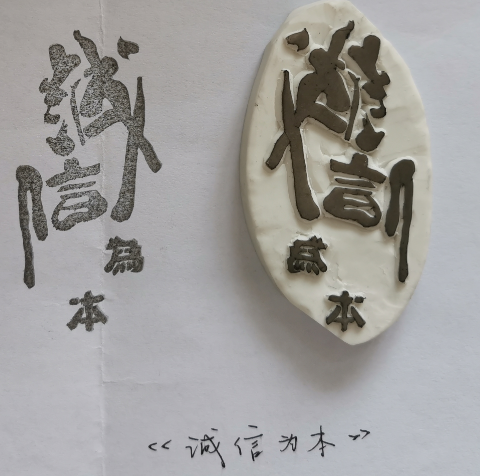 诚信
為
本
誠信
為
本
《诚信为本》